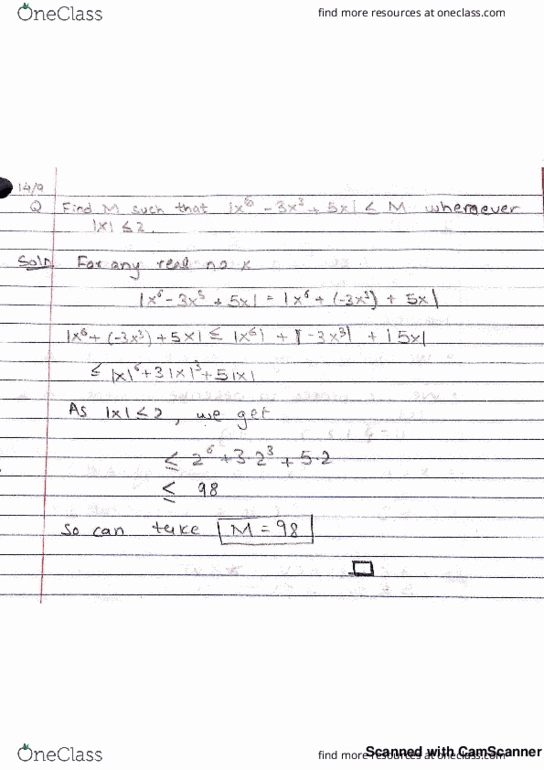 OneClass
find more resources at oneclass.com
14/9
Q Find M such that |x⁶ - 3x³ + 5x| ≤ M whenever
|x| ≤ 2.
Soln For any real no x
|x⁶ - 3x³ + 5x| = |x⁶ + (-3x³) + 5x|
|x⁶ + (-3x³) + 5x| ≤ |x⁶| + |-3x³| + |5x|
≤ |x|⁶ + 3|x|³ + 5|x|
As |x| ≤ 2, we get
≤ 2⁶ + 3·2³ + 5·2
≤ 98
So can take M = 98
OneClass
find more resources at oneclass.com
Scanned with CamScanner